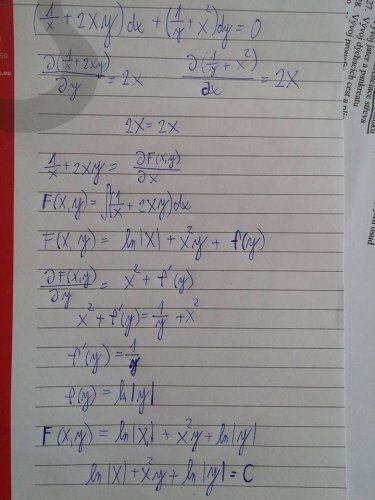 (1/x + 2xy)dx + (1/y + x²)dy = 0
∂(1/x + 2xy)/∂y = 2x ∂(1/y + x²)/dx = 2x
2x = 2x
1/x + 2xy = ∂F(x,y)/∂x
F(x,y) = ∫(1/x + 2xy)dx
F(x,y) = ln|x| + x²y + f(y)
∂F(x,y)/∂y = x² + f'(y)
x² + f'(y) = 1/y + x²
f'(y) = 1/y
f(y) = ln|y|
F(x,y) = ln|x| + x²y + ln|y|
ln|x| + x²y + ln|y| = C
27.